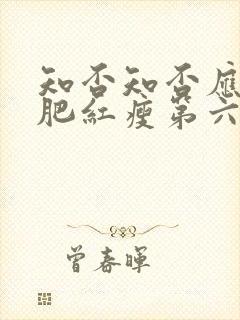 知否知否應
肥紅瘦第六
曾春暉